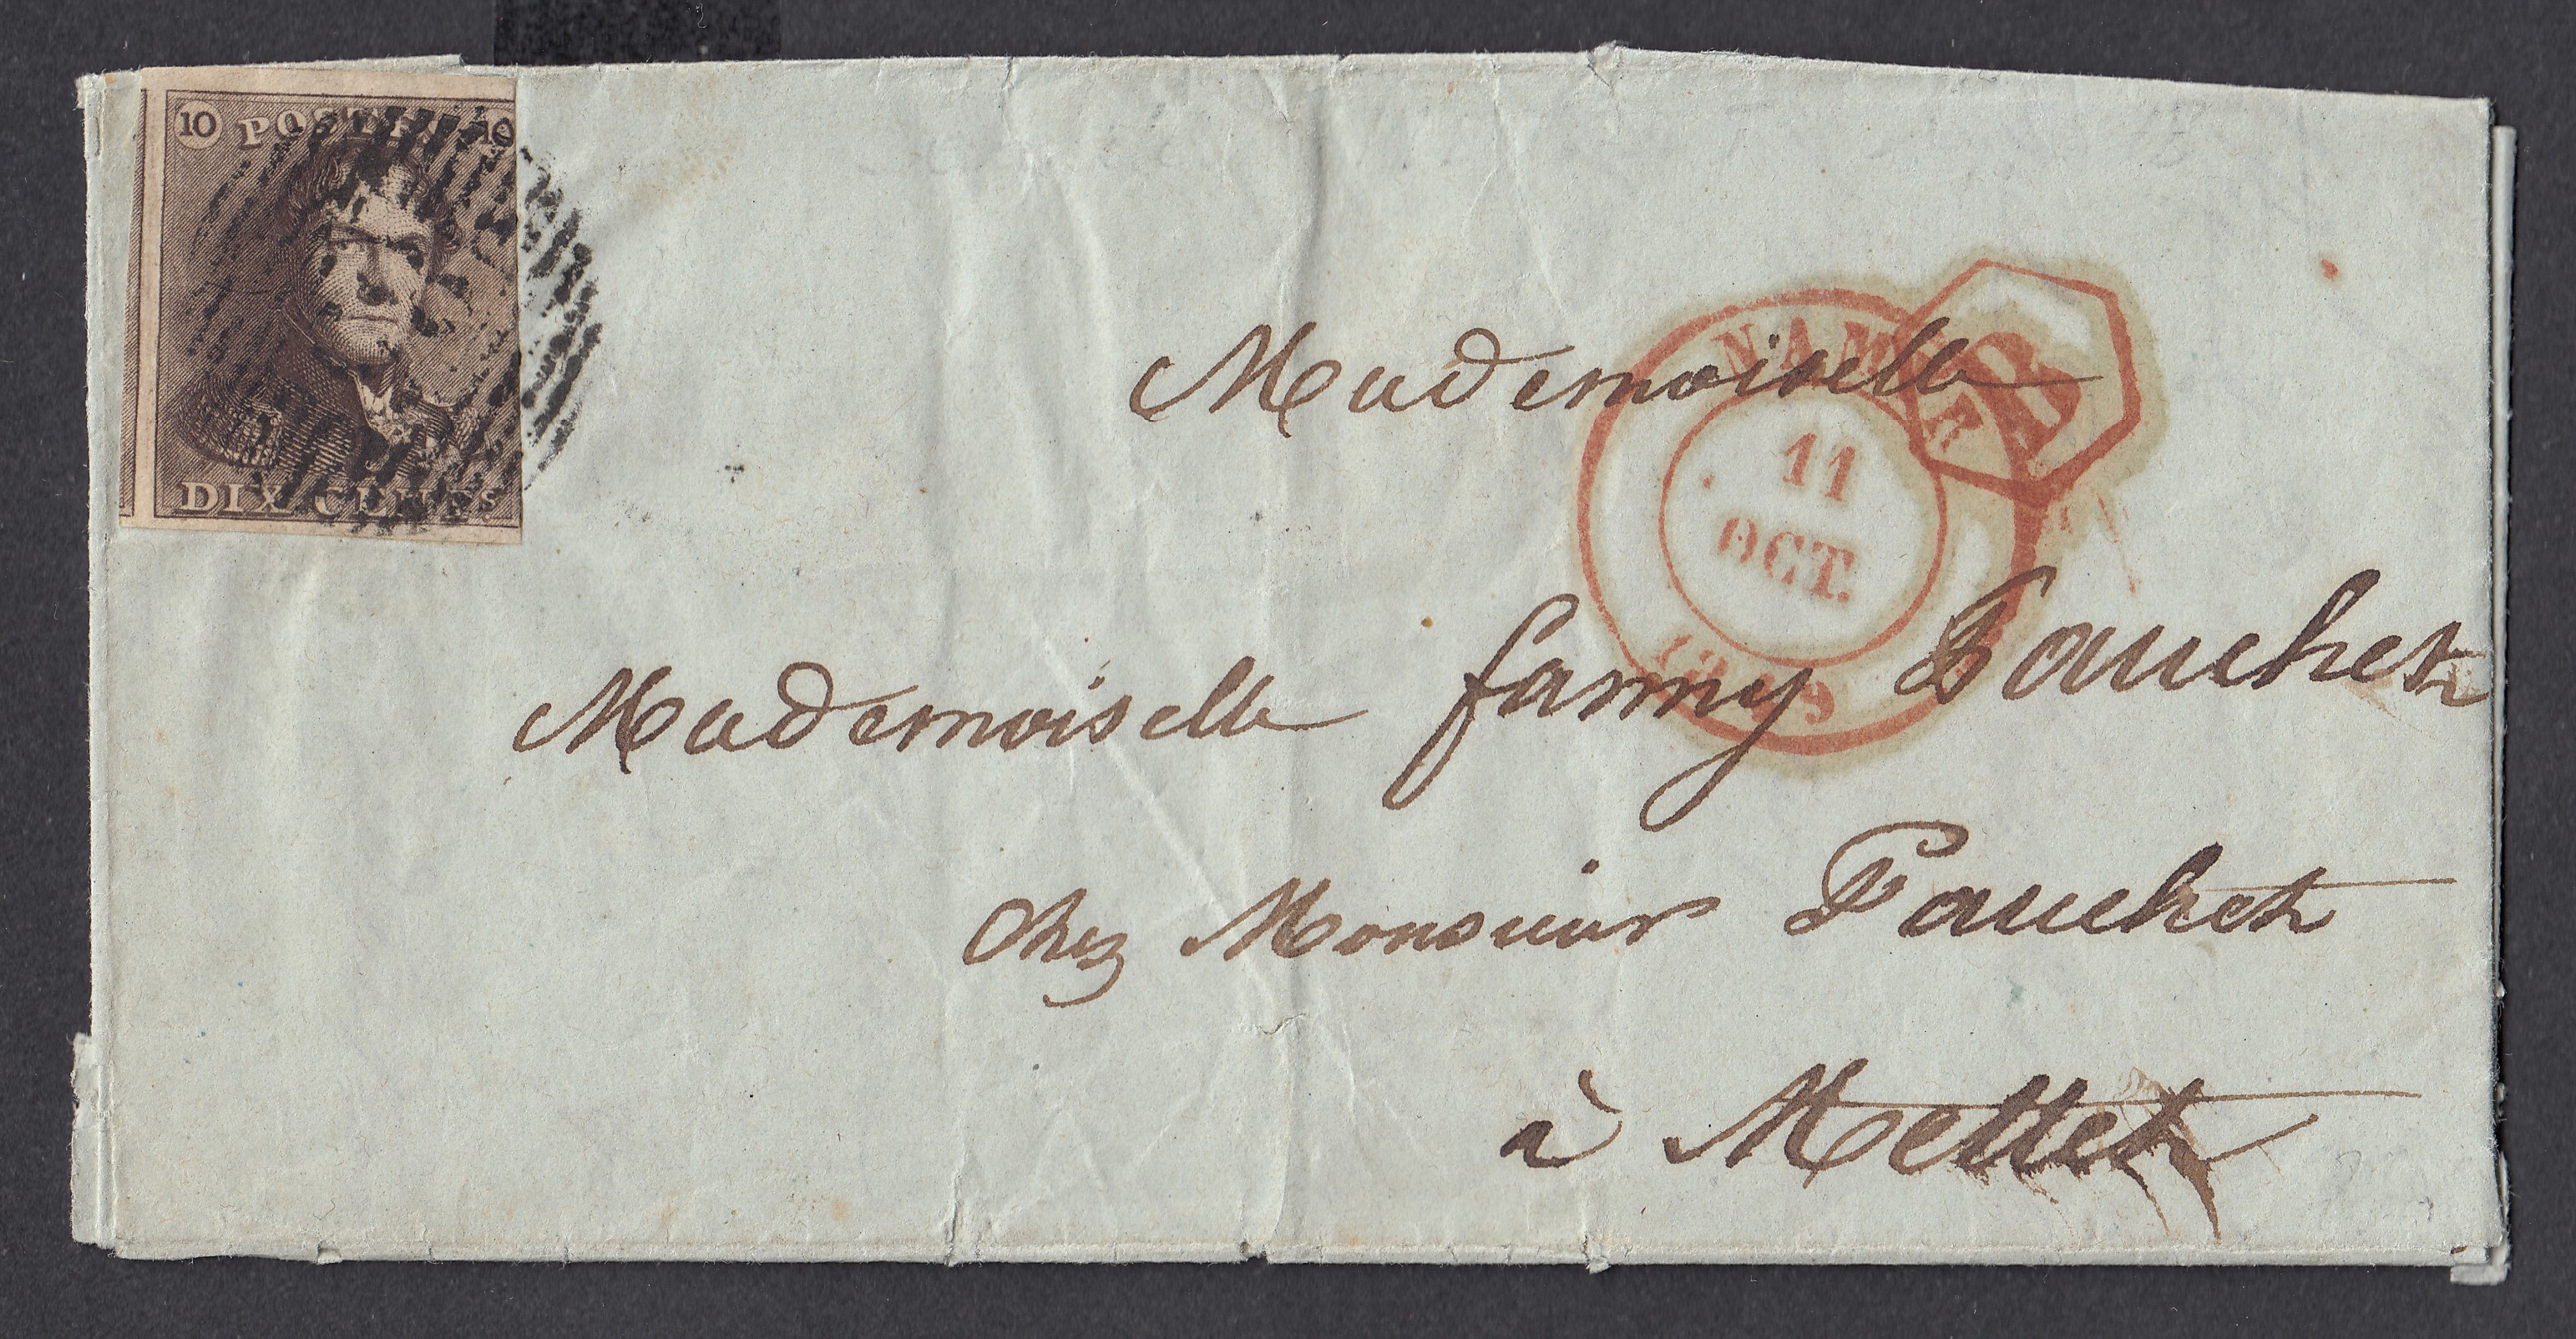 10 POSTES 10
DIX CENTS
NAMUR
11
OCT.
1849
Mademoiselle
Mademoiselle fanny Pauchet
Chez Monsieur Pauchet
à Mettet